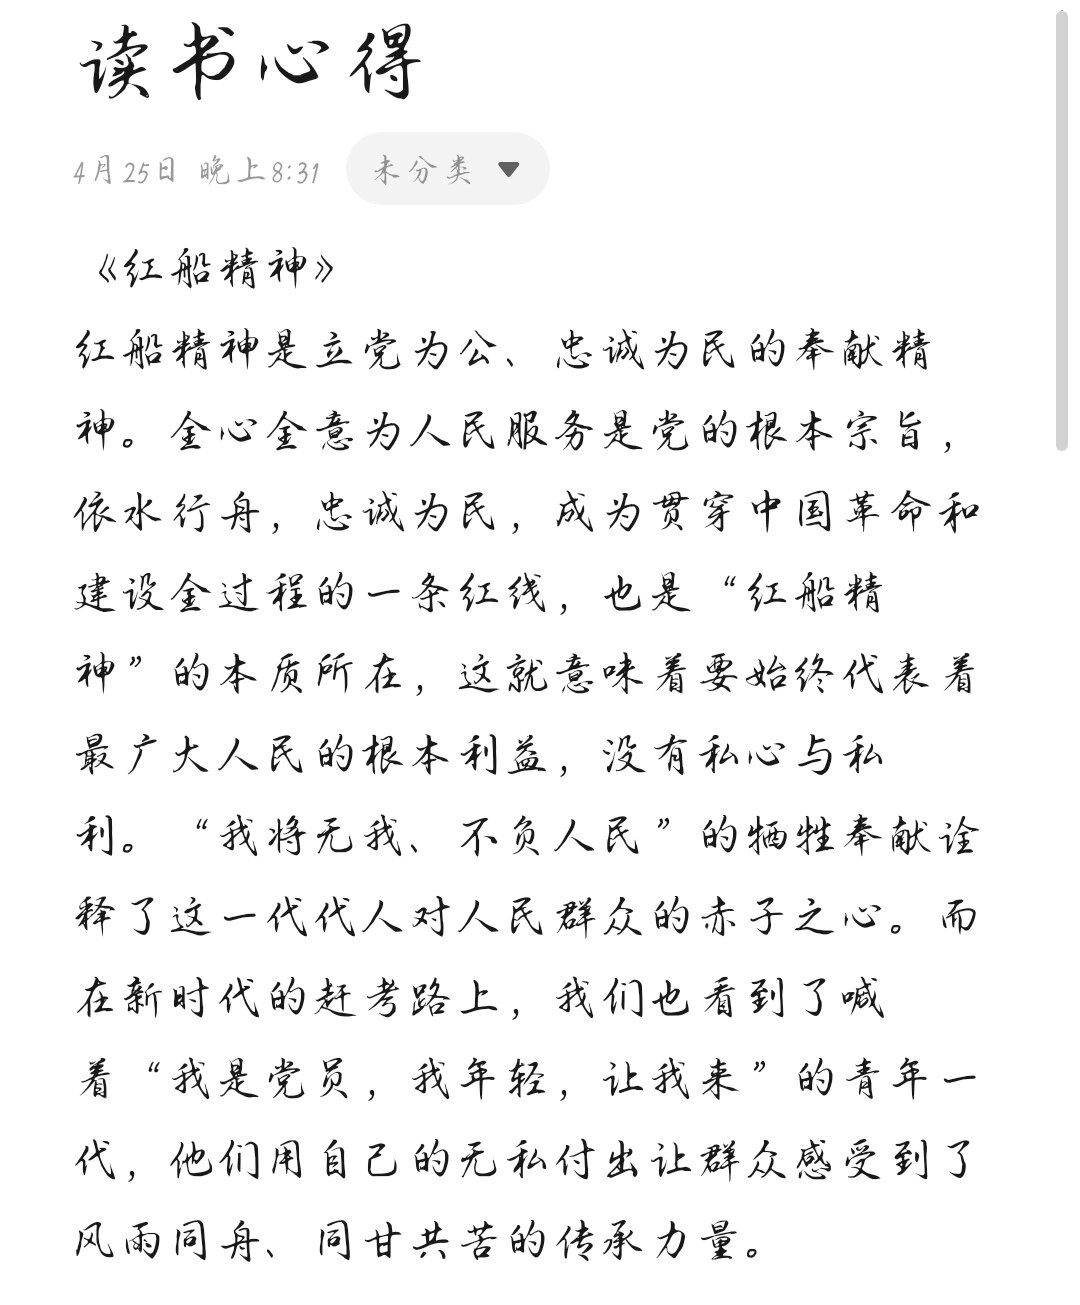 读书心得
4月25日 晚上8:31 未分类
《红船精神》
红船精神是立党为公、忠诚为民的奉献精
神。全心全意为人民服务是党的根本宗旨，
依水行舟，忠诚为民，成为贯穿中国革命和
建设全过程的一条红线，也是“红船精
神”的本质所在，这就意味着要始终代表着
最广大人民的根本利益，没有私心与私
利。“我将无我、不负人民”的牺牲奉献诠
释了这一代代人对人民群众的赤子之心。而
在新时代的赶考路上，我们也看到了喊
着“我是党员，我年轻，让我来”的青年一
代，他们用自己的无私付出让群众感受到了
风雨同舟、同甘共苦的传承力量。